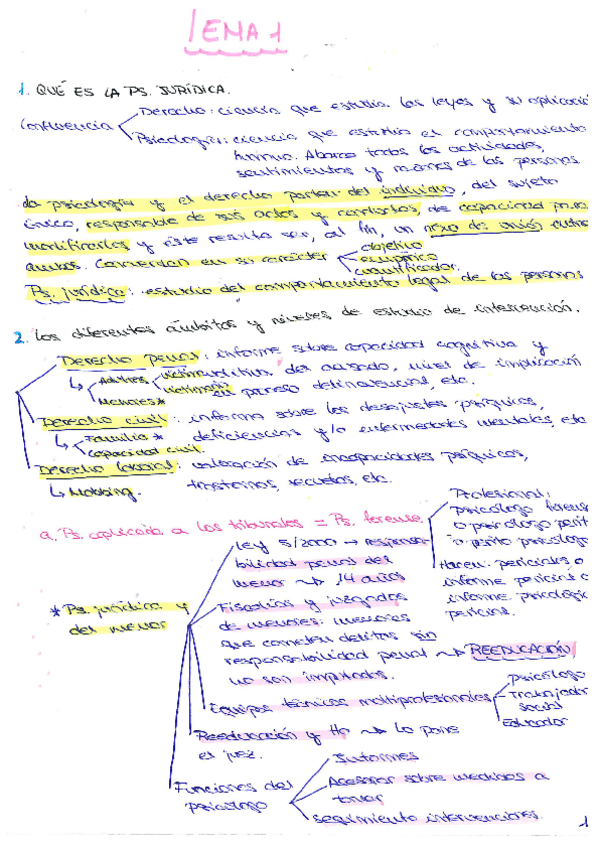 TEMA 1
1. QUÉ ES LA PS. JURÍDICA.
Confluencia
Derecho: ciencia que estudia las leyes y su aplicació
Psicología: ciencia que estudia el comportamiento
humano. Abarca todas las actividades,
sentimientos y razones de las personas.
La psicología y el derecho parten del individuo, del sujeto
único, responsable de sus actos y conductas, de capacidad para
modificarlos y éste resulta ser, al fin, un nexo de unión entre
ambos. Concuerdan en su carácter
objetivo
empírico
cuantificador.
Ps. jurídica: estudio del comportamiento legal de las personas
2. Los diferentes ámbitos y niveles de estudio de intervención.
Derecho penal: informe sobre capacidad cognitiva y
volitiva del acusado, nivel de implicación
en proceso delincuencial, etc.
Adultos
victimario
victimado
Menores *
Derecho civil: informa sobre los desajustes psíquicos,
deficiencias y/o enfermedades mentales, etc
Familia *
Capacidad civil.
Derecho laboral: valoración de incapacidades psíquicas,
trastornos, secuelas, etc.
Mobbing.
a. Ps. aplicada a los tribunales = Ps. forense
Profesional:
psicólogo forens
o psicólogo perit
o perito psicólogo
Hacen: periciales o
informe pericial o
informe psicológic
pericial.
* Ps. jurídica y
del menor
Ley 5/2000 → responsa-
bilidad penal del
menor ~> 14 años
Fiscalías y juzgados
de menores: menores
que cometen delitos sin
responsabilidad penal ~> REEDUCACIÓN,
no son imputados.
Equipos técnicos multiprofesionales
Psicólogo
Trabajador
social
Educador
Reeducación y tto ~> Lo pone
el juez.
Funciones del
psicólogo
Informes
Asesorar sobre medidas a
tomar
seguimiento intervenciones.
1